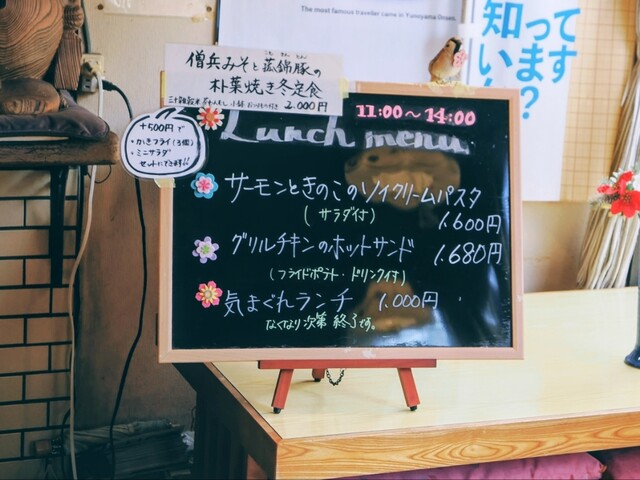 The most famous traveller came in Yunoyama Onsen.
知って
いますか?
こもきんとん
僧兵みそと菰錦豚の
朴葉焼き冬定食
2.000円
+500円で
・かきフライ(3個)
・ミニサラダ
セットにできます!!
11:00～14:00
Lunch menu
サーモンときのこのソイクリームパスタ
(サラダ付) 1.600円
グリルチキンのホットサンド 1.680円
(フライドポテト・ドリンク付)
気まぐれランチ 1.000円
なくなり次第 終了です。